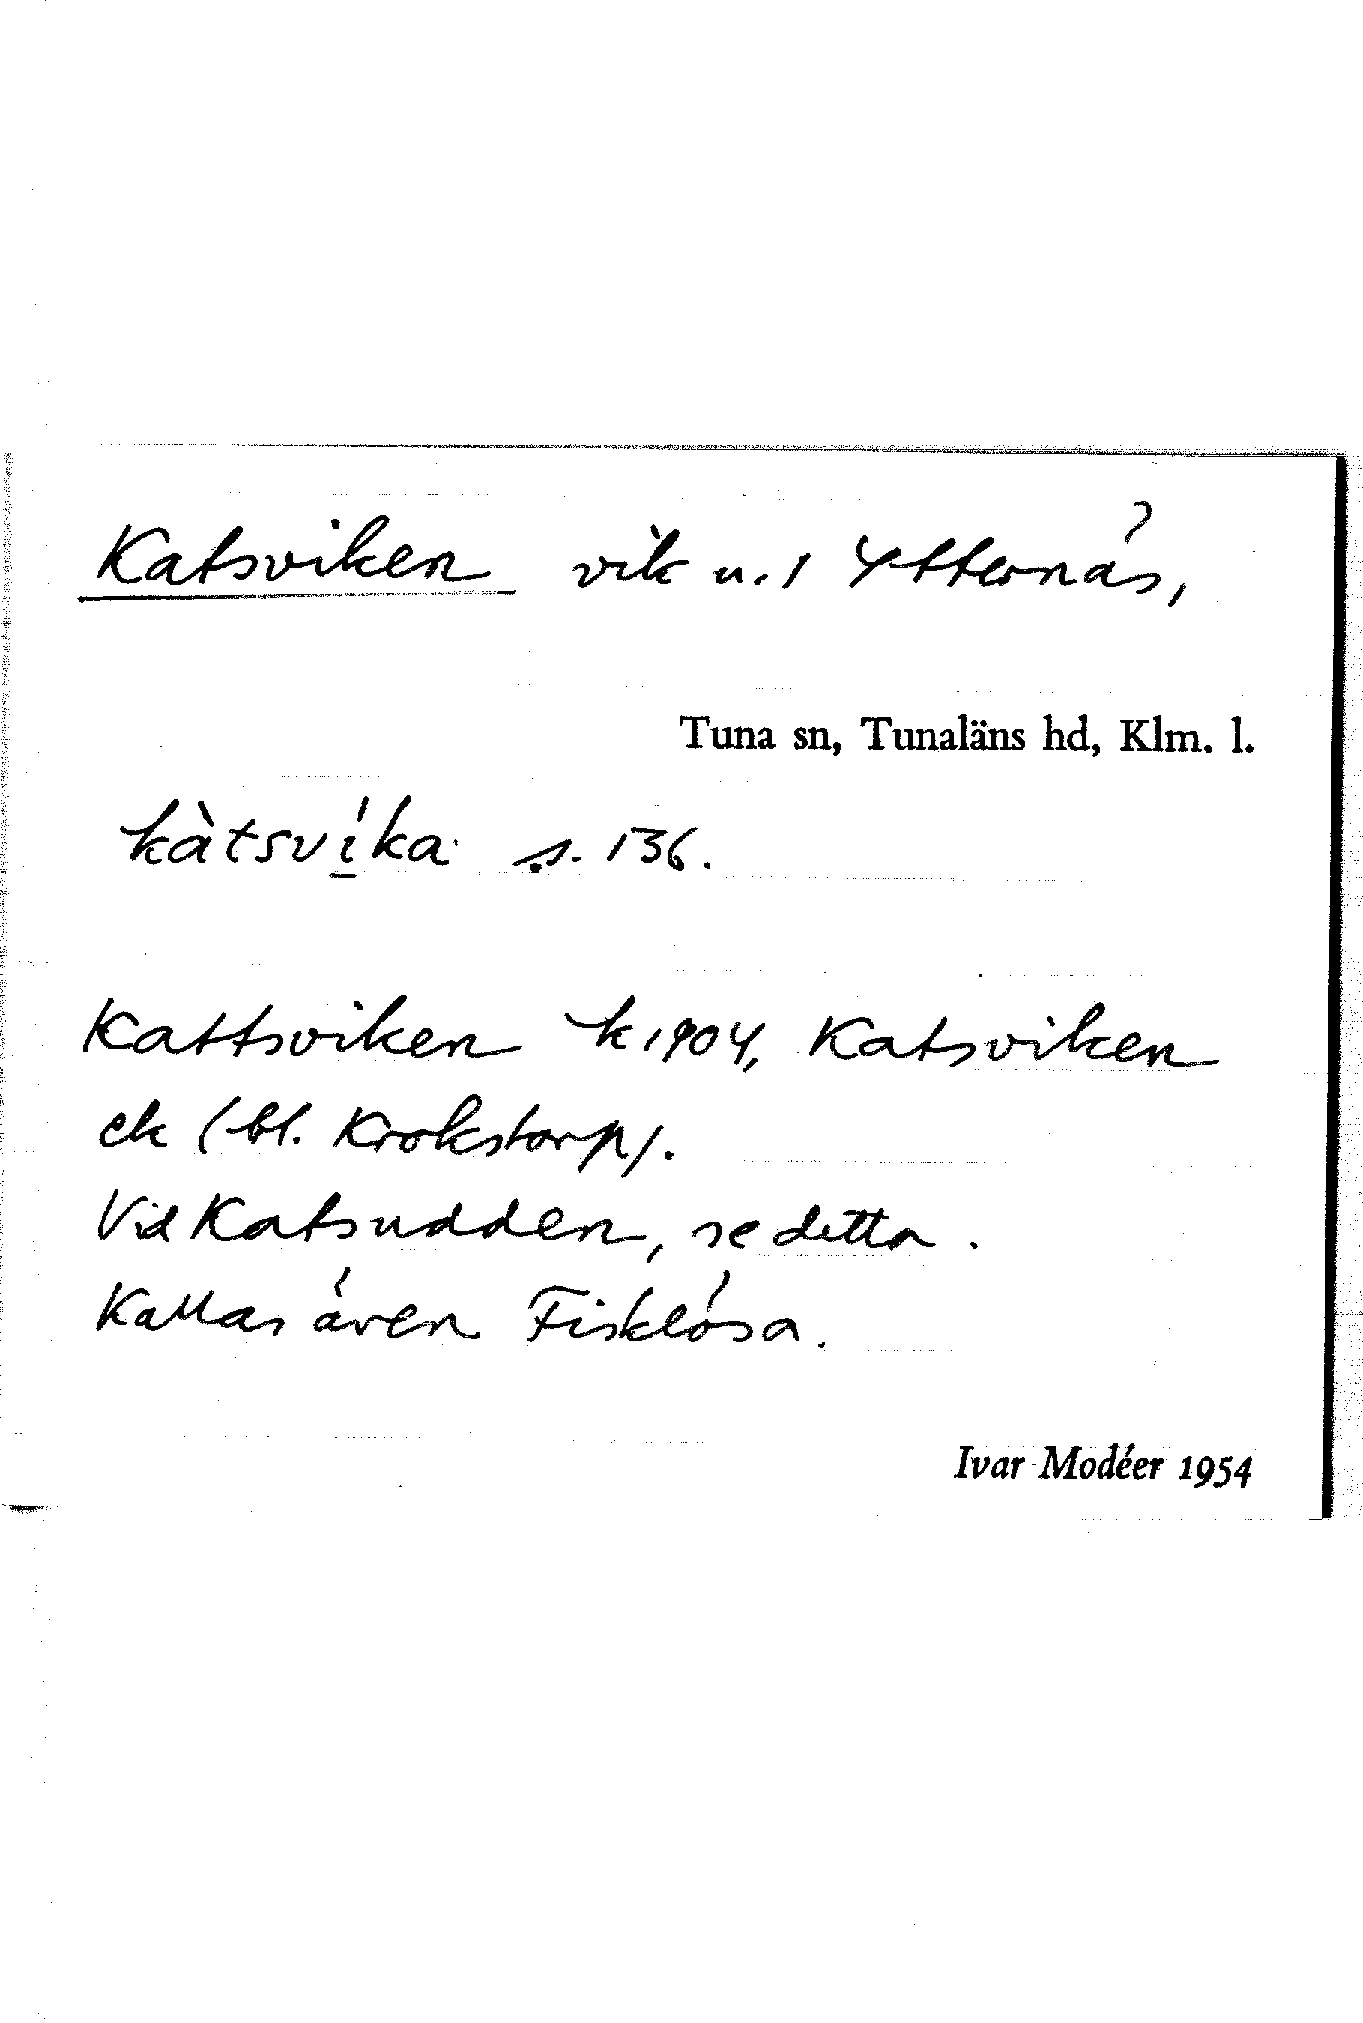 Katsviken vik u. / Ytternäs,
Tuna sn, Tunaläns hd, Klm. l.
kàtsví̲ka s. 136.
Kattsviken k 1904, Katsviken
ek (bl. Krokstorp).
Vid Katsudden, se detta.
Kallas även Fisklösa.
Ivar Modéer 1954